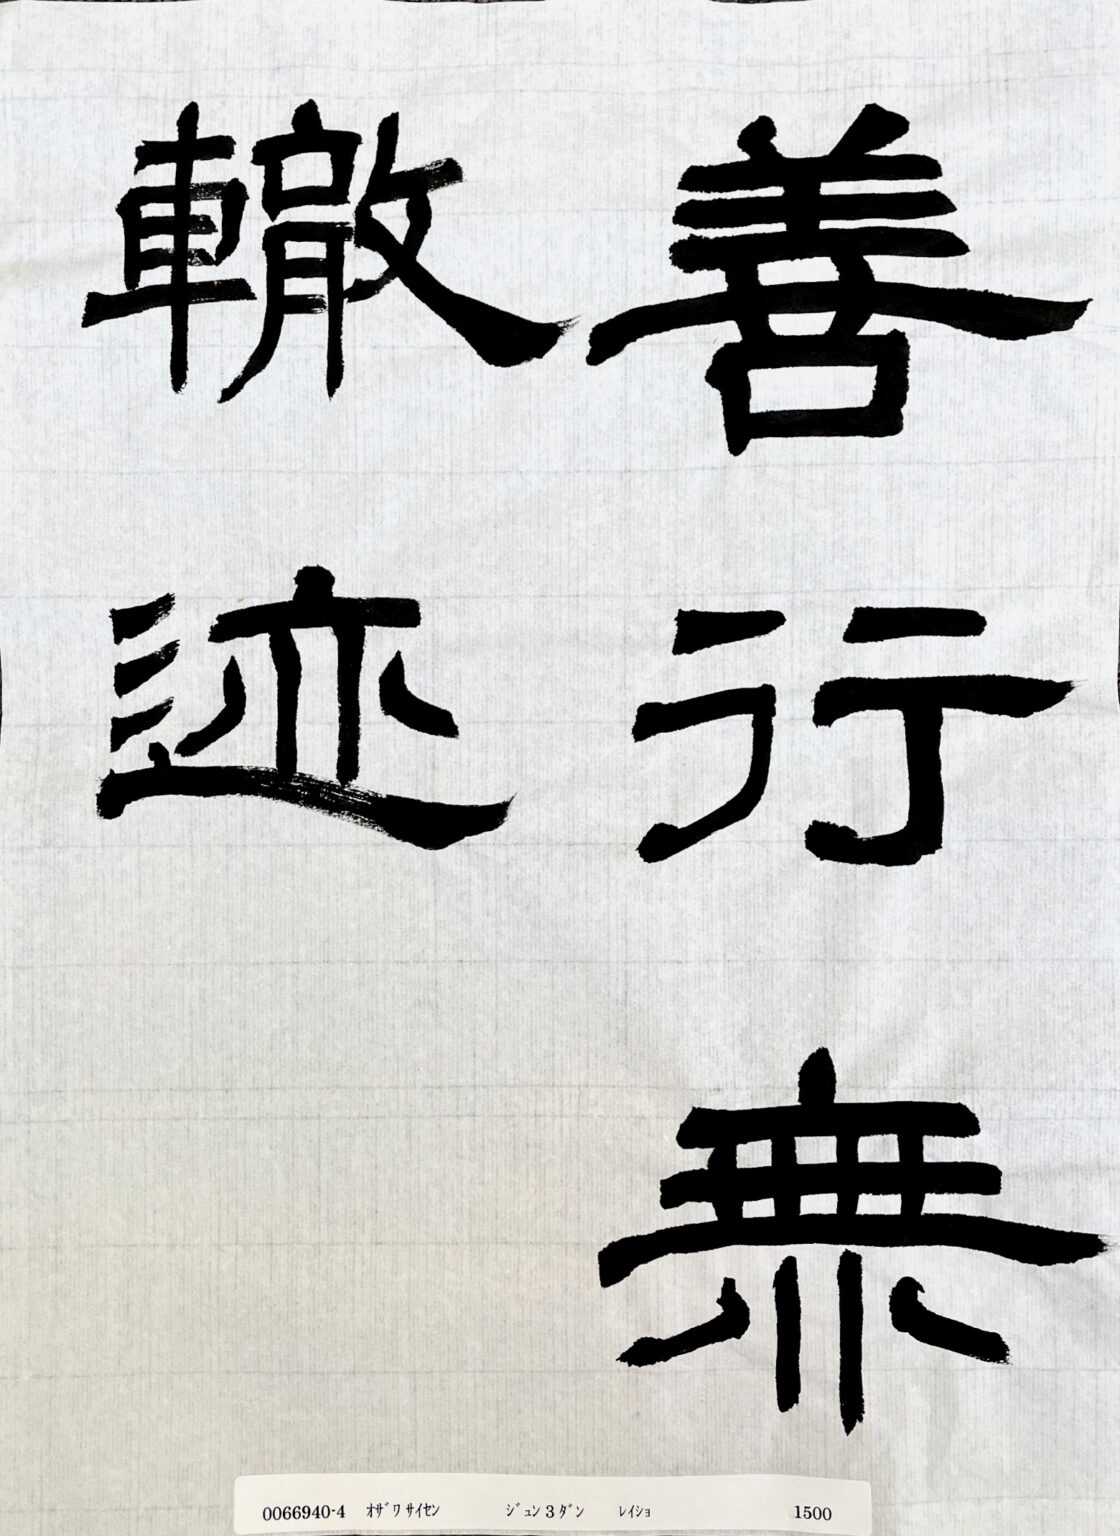 善行無
轍迹
0066940-4 ｵｻﾞﾜ ｻｲｾﾝ ｼﾞｭﾝ３ﾀﾞﾝ ﾚｲｼｮ 1500